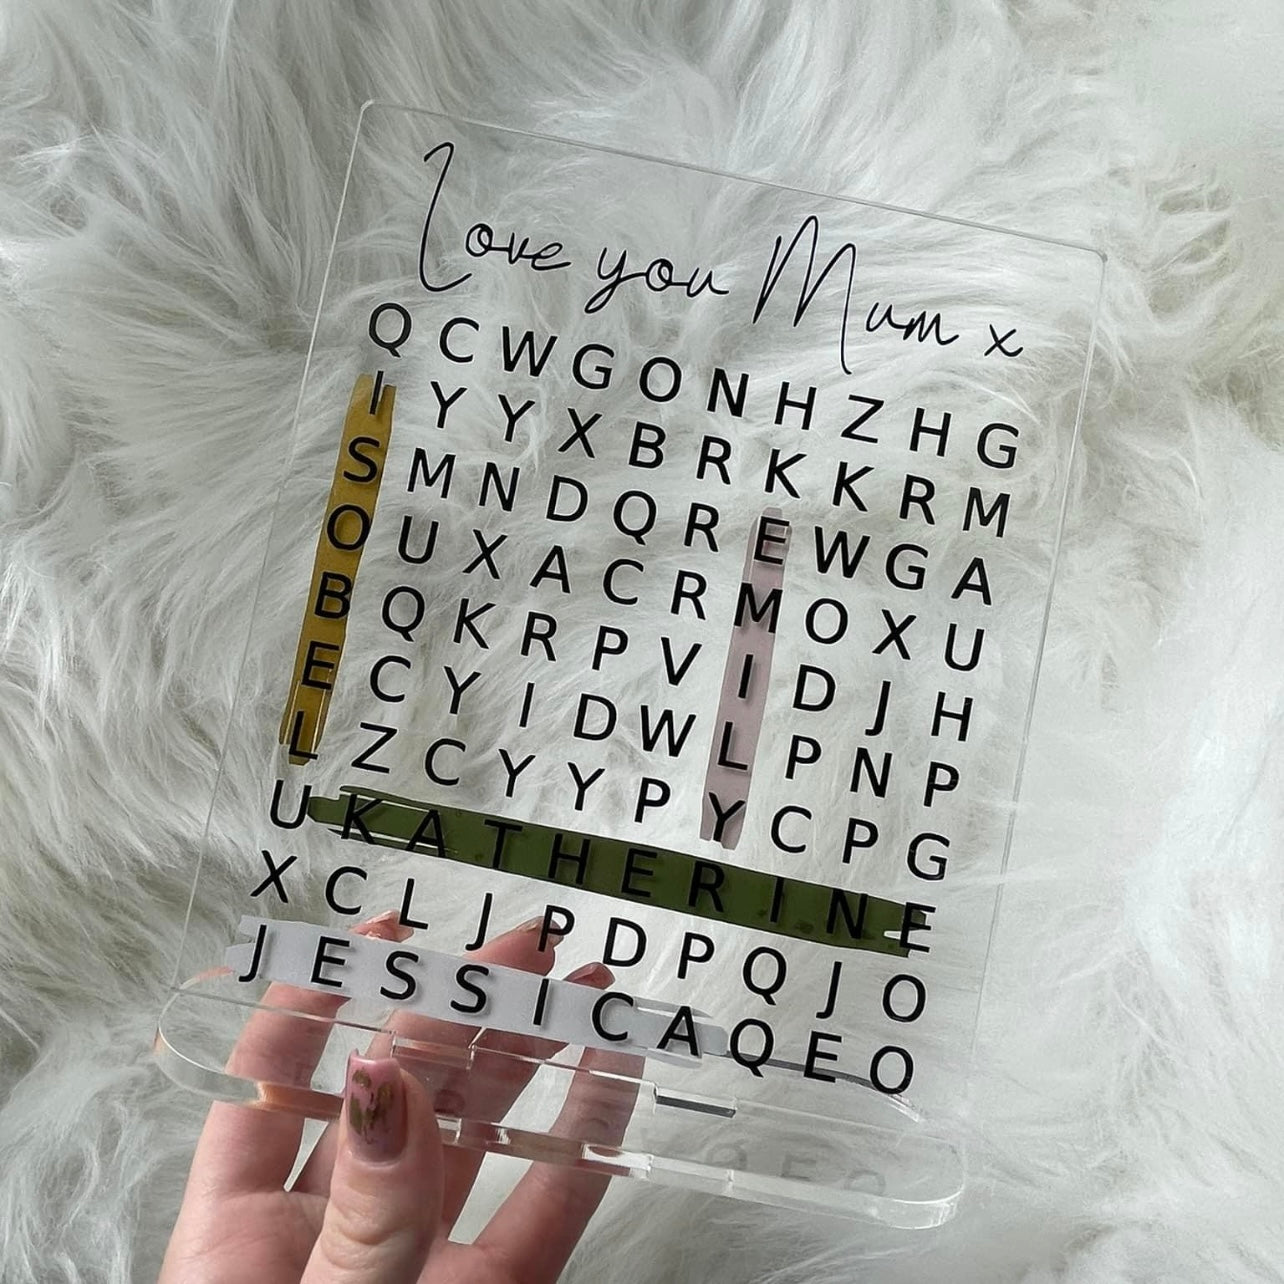 Love you Mum x
Q C W G O N H Z H G
I Y Y X B R K K R M
S M N D Q R E W G A
O U X A C R M O X U
B Q K R P V I D J H
E C Y I D W L P N P
L Z C Y Y P Y C P G
U K A T H E R I N E
X C L J P D P Q J O
J E S S I C A Q E O